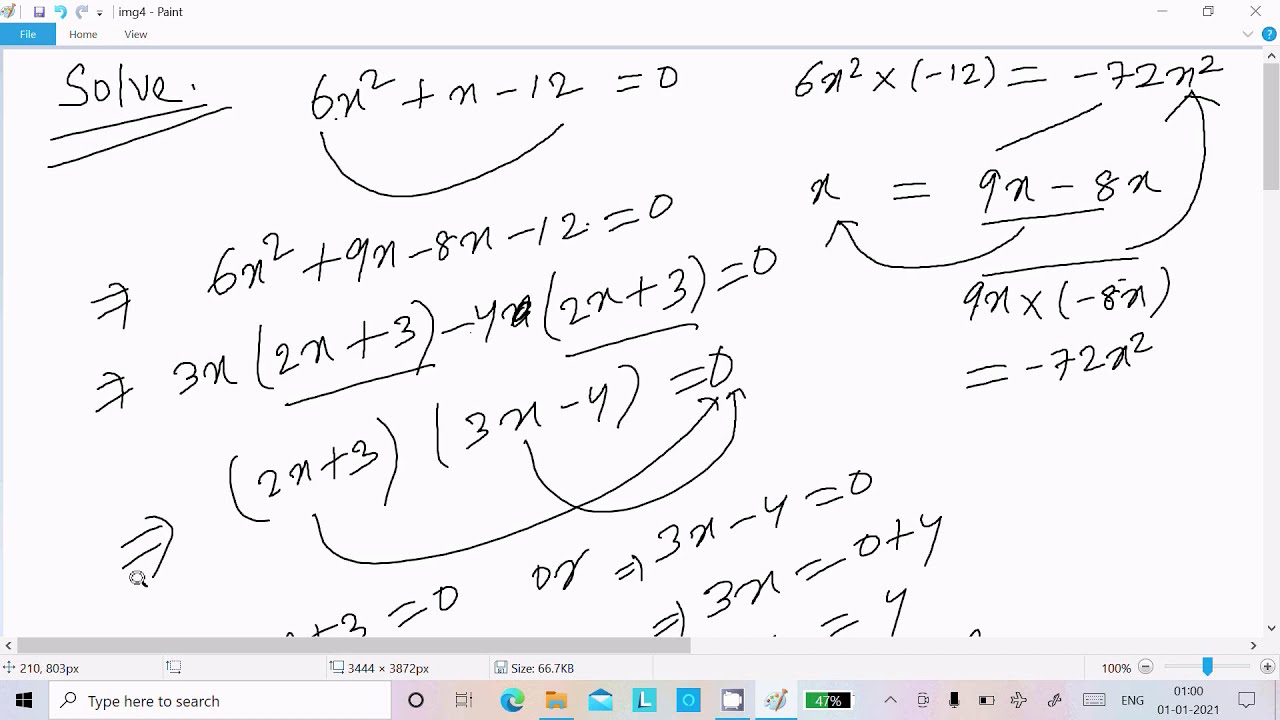 img4 - Paint
File Home View
Solve.
6x² + x - 12 = 0
6x² × (-12) = -72x²
x = 9x - 8x
⇒ 6x² + 9x - 8x - 12 = 0
9x × (-8x)
⇒ 3x (2x + 3) - 4 (2x + 3) = 0
= -72x²
(2x + 3) (3x - 4) = 0
⇒
+3 = 0 or ⇒ 3x - 4 = 0
⇒ 3x = 0 + 4
⇒ = 4
210, 803px
3444 × 3872px
Size: 66.7KB
100%
Type here to search
L
47%
ENG
01:00
01-01-2021